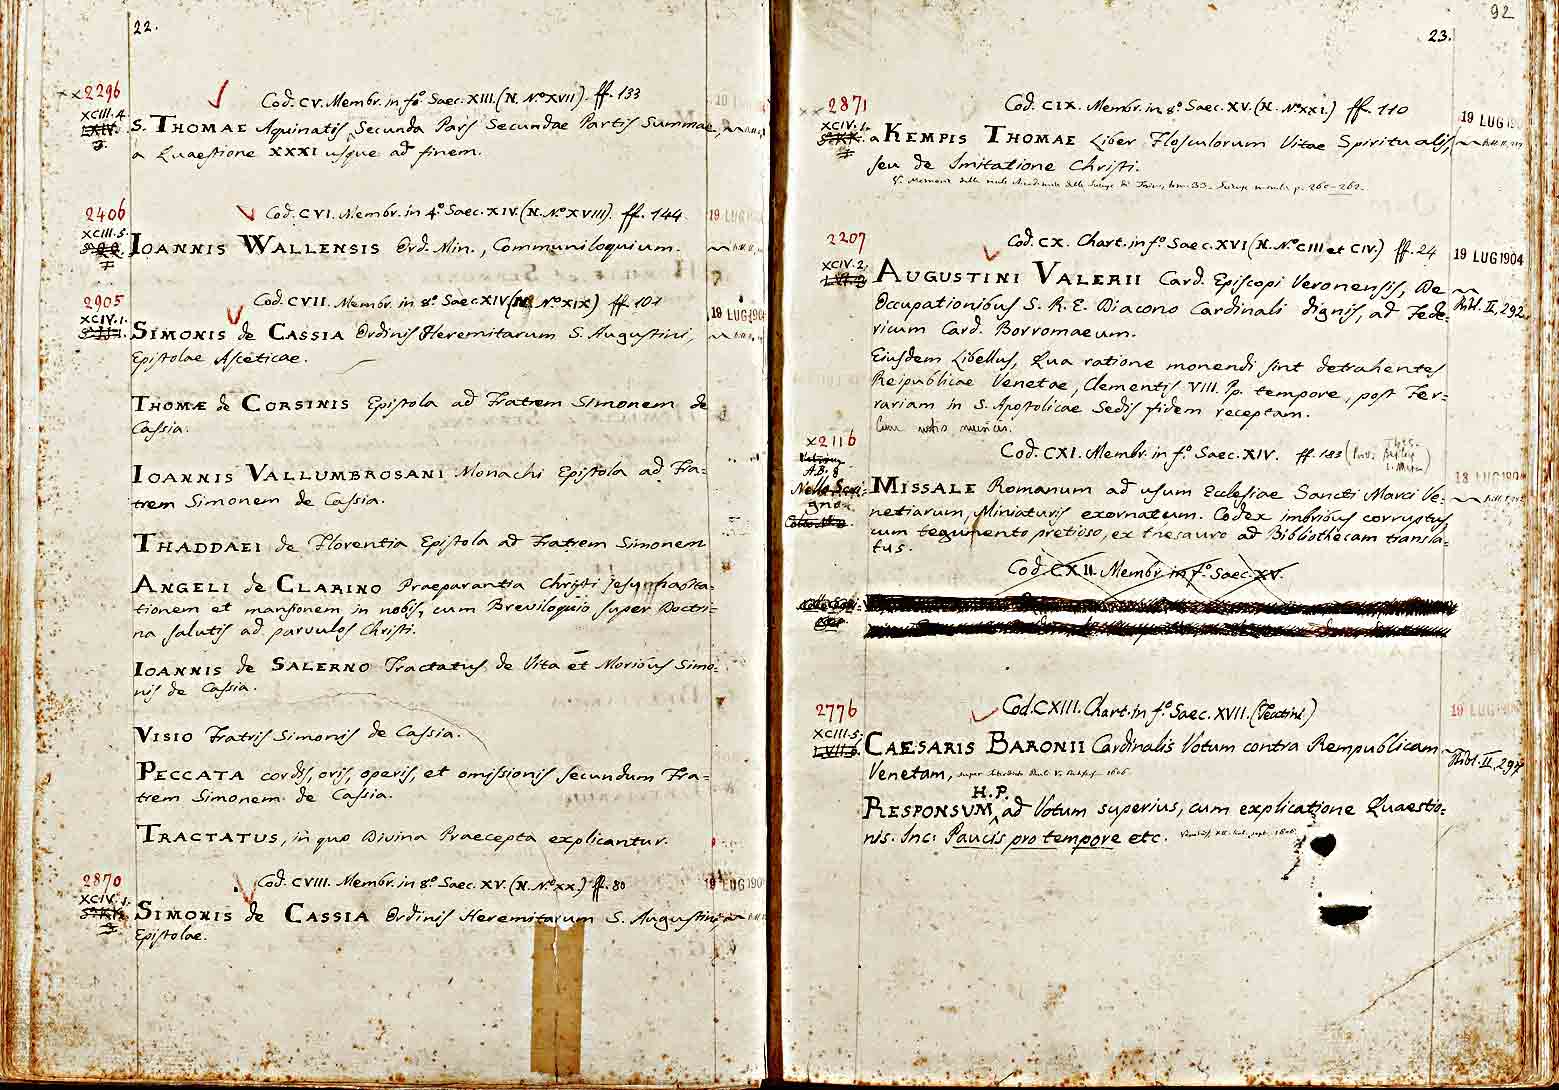 22.
××2296
XCIII.4.
LXIV.
3.
Cod. CV. Membr. in fo. Saec. XIII. (N. No XVII). ff. 133
S. THOMAE Aquinatis Secunda Pars Secundae Partis Summae,
a Quaestione XXXI usque ad finem.
2406
XCIII.5.
Cod. CVI. Membr. in 4o. Saec. XIV. (N. No XVIII). ff. 144
19 LUG
IOANNIS WALLENSIS Ord. Min., Communiloquium.
2905
XCIV.1.
Cod. CVII. Membr. in 8o. Saec XIV (N. No XIX) ff. 101
19 LUG 190
SIMONIS de CASSIA Ordinis Heremitarum S. Augustini,
Epistolae Asceticae.
THOMÆ de CORSINIS Epistola ad Fratrem Simonem de
Cassia.
IOANNIS VALLUMBROSANI Monachi Epistola ad Fra=
trem Simonem de Cassia.
THADDAEI de Florentia Epistola ad Fratrem Simonem
ANGELI de CLARINO Praeparantia Christi Jesu habita=
tionem et mansionem in nobis, cum Breviloquio super Doctri=
na salutis ad parvulos Christi.
IOANNIS de SALERNO Tractatus de Vita et Moribus Simo=
nis de Cassia.
VISIO Fratris Simonis de Cassia.
PECCATA cordis, oris, operis, et omissionis secundum Fra=
trem Simonem de Cassia.
TRACTATUS, in quo Divina Praecepta explicantur.
2870
XCIV.1.
Cod. CVIII. Membr. in 8o. Saec. XV. (N. No XX) ff. 80
19 LUG 190
SIMONIS de CASSIA Ordinis Heremitarum S. Augustini,
Epistolae.
92
23.
2871
XCIV.1.
Cod. CIX. Membr. in 8o. Saec. XV. (N. No XXI.) ff. 110
19 LUG 190
a KEMPIS THOMAE Liber Flosculorum Vitae Spiritualis,
seu de Imitatione Christi.
2207
XCIV.2.
Cod. CX. Chart. in fo. Saec. XVI (N. No CIII et CIV.) ff. 24
19 LUG 1904
AUGUSTINI VALERII Card. Episcopi Veronensis, De
Occupationibus S. R. E. Diacono Cardinali dignis, ad Fede=
Bibl. II, 292.
ricum Card. Borromaeum.
Eiusdem Libellus, Qua ratione monendi sint detrahentes
Reipublicae Venetae, Clementis VIII. Pp. tempore, post Fer=
rariam in S. Apostolicae Sedis fidem receptam.
×2116
A.B. 8
Cod. CXI. Membr. in fo. Saec. XIV. ff. 183
18 LUG 190
MISSALE Romanum ad usum Ecclesiae Sancti Marci Ve=
netiarum, Miniaturis exornatum. Codex imbribus corruptus,
cum tegumento pretioso, ex thesauro ad Bibliothecam transla=
tus.
Cod. CXII. Membr. in fo. Saec. XV.
2776
XCIII.5.
LVII.6.
Cod. CXIII. Chart. in fo. Saec. XVII.
19 LUG
CAESARIS BARONII Cardinalis Votum contra Rempublicam
Venetam,
Bibl. II, 297
H.P.
RESPONSUM ad Votum superius, cum explicatione Quaestio=
nis. Inc: Paucis pro tempore etc.